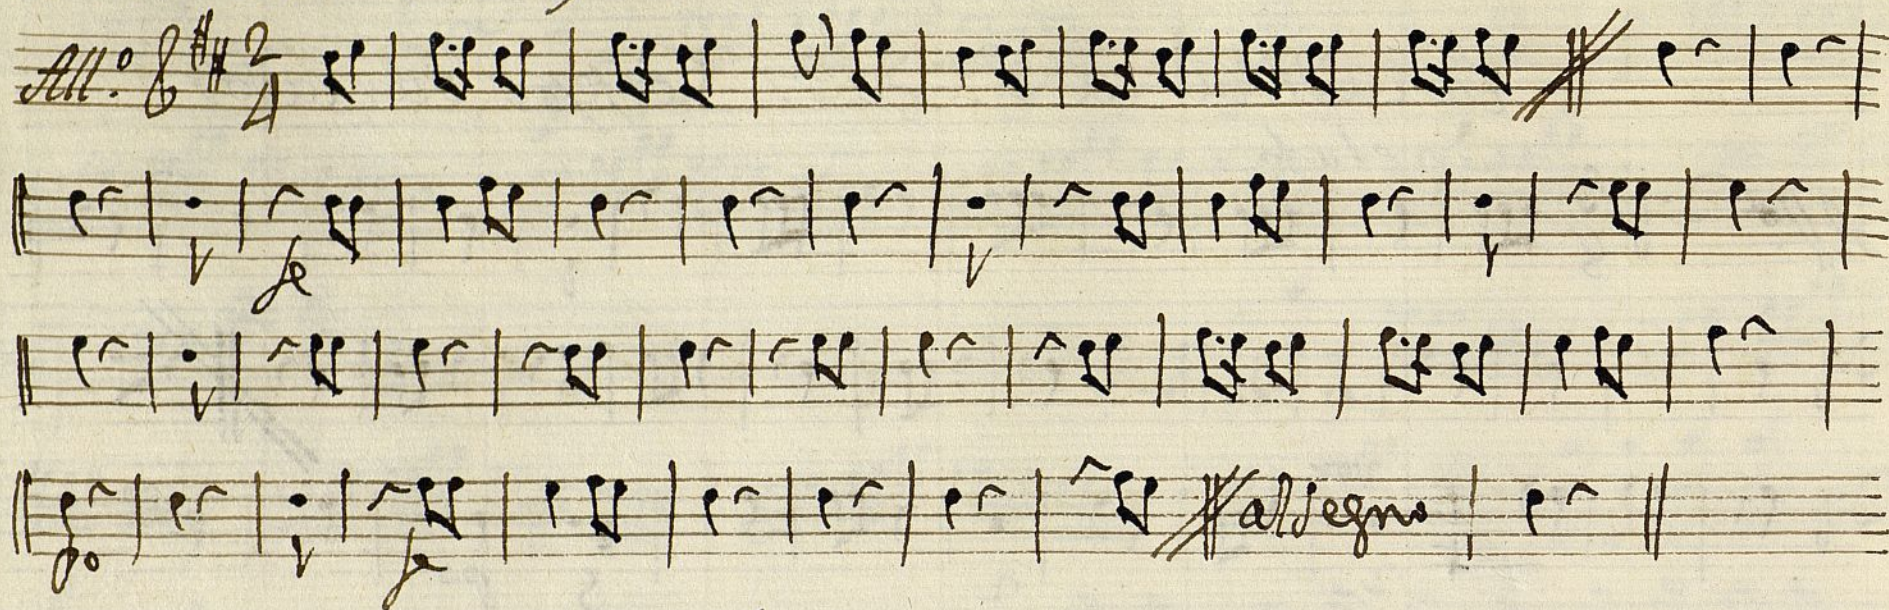 All.o 2/4
fe
po fe al segno